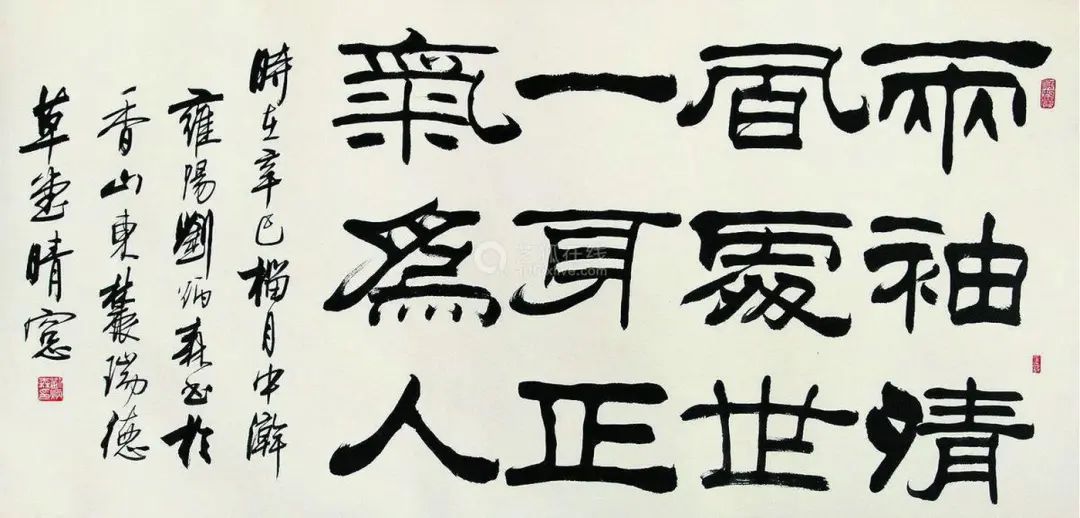 兩袖清
風處世
一身正
氣為人
時在辛巳榴月中澣
雍陽劉炳森書於
香山東麓瑞德
草堂晴窓
艺狐在线